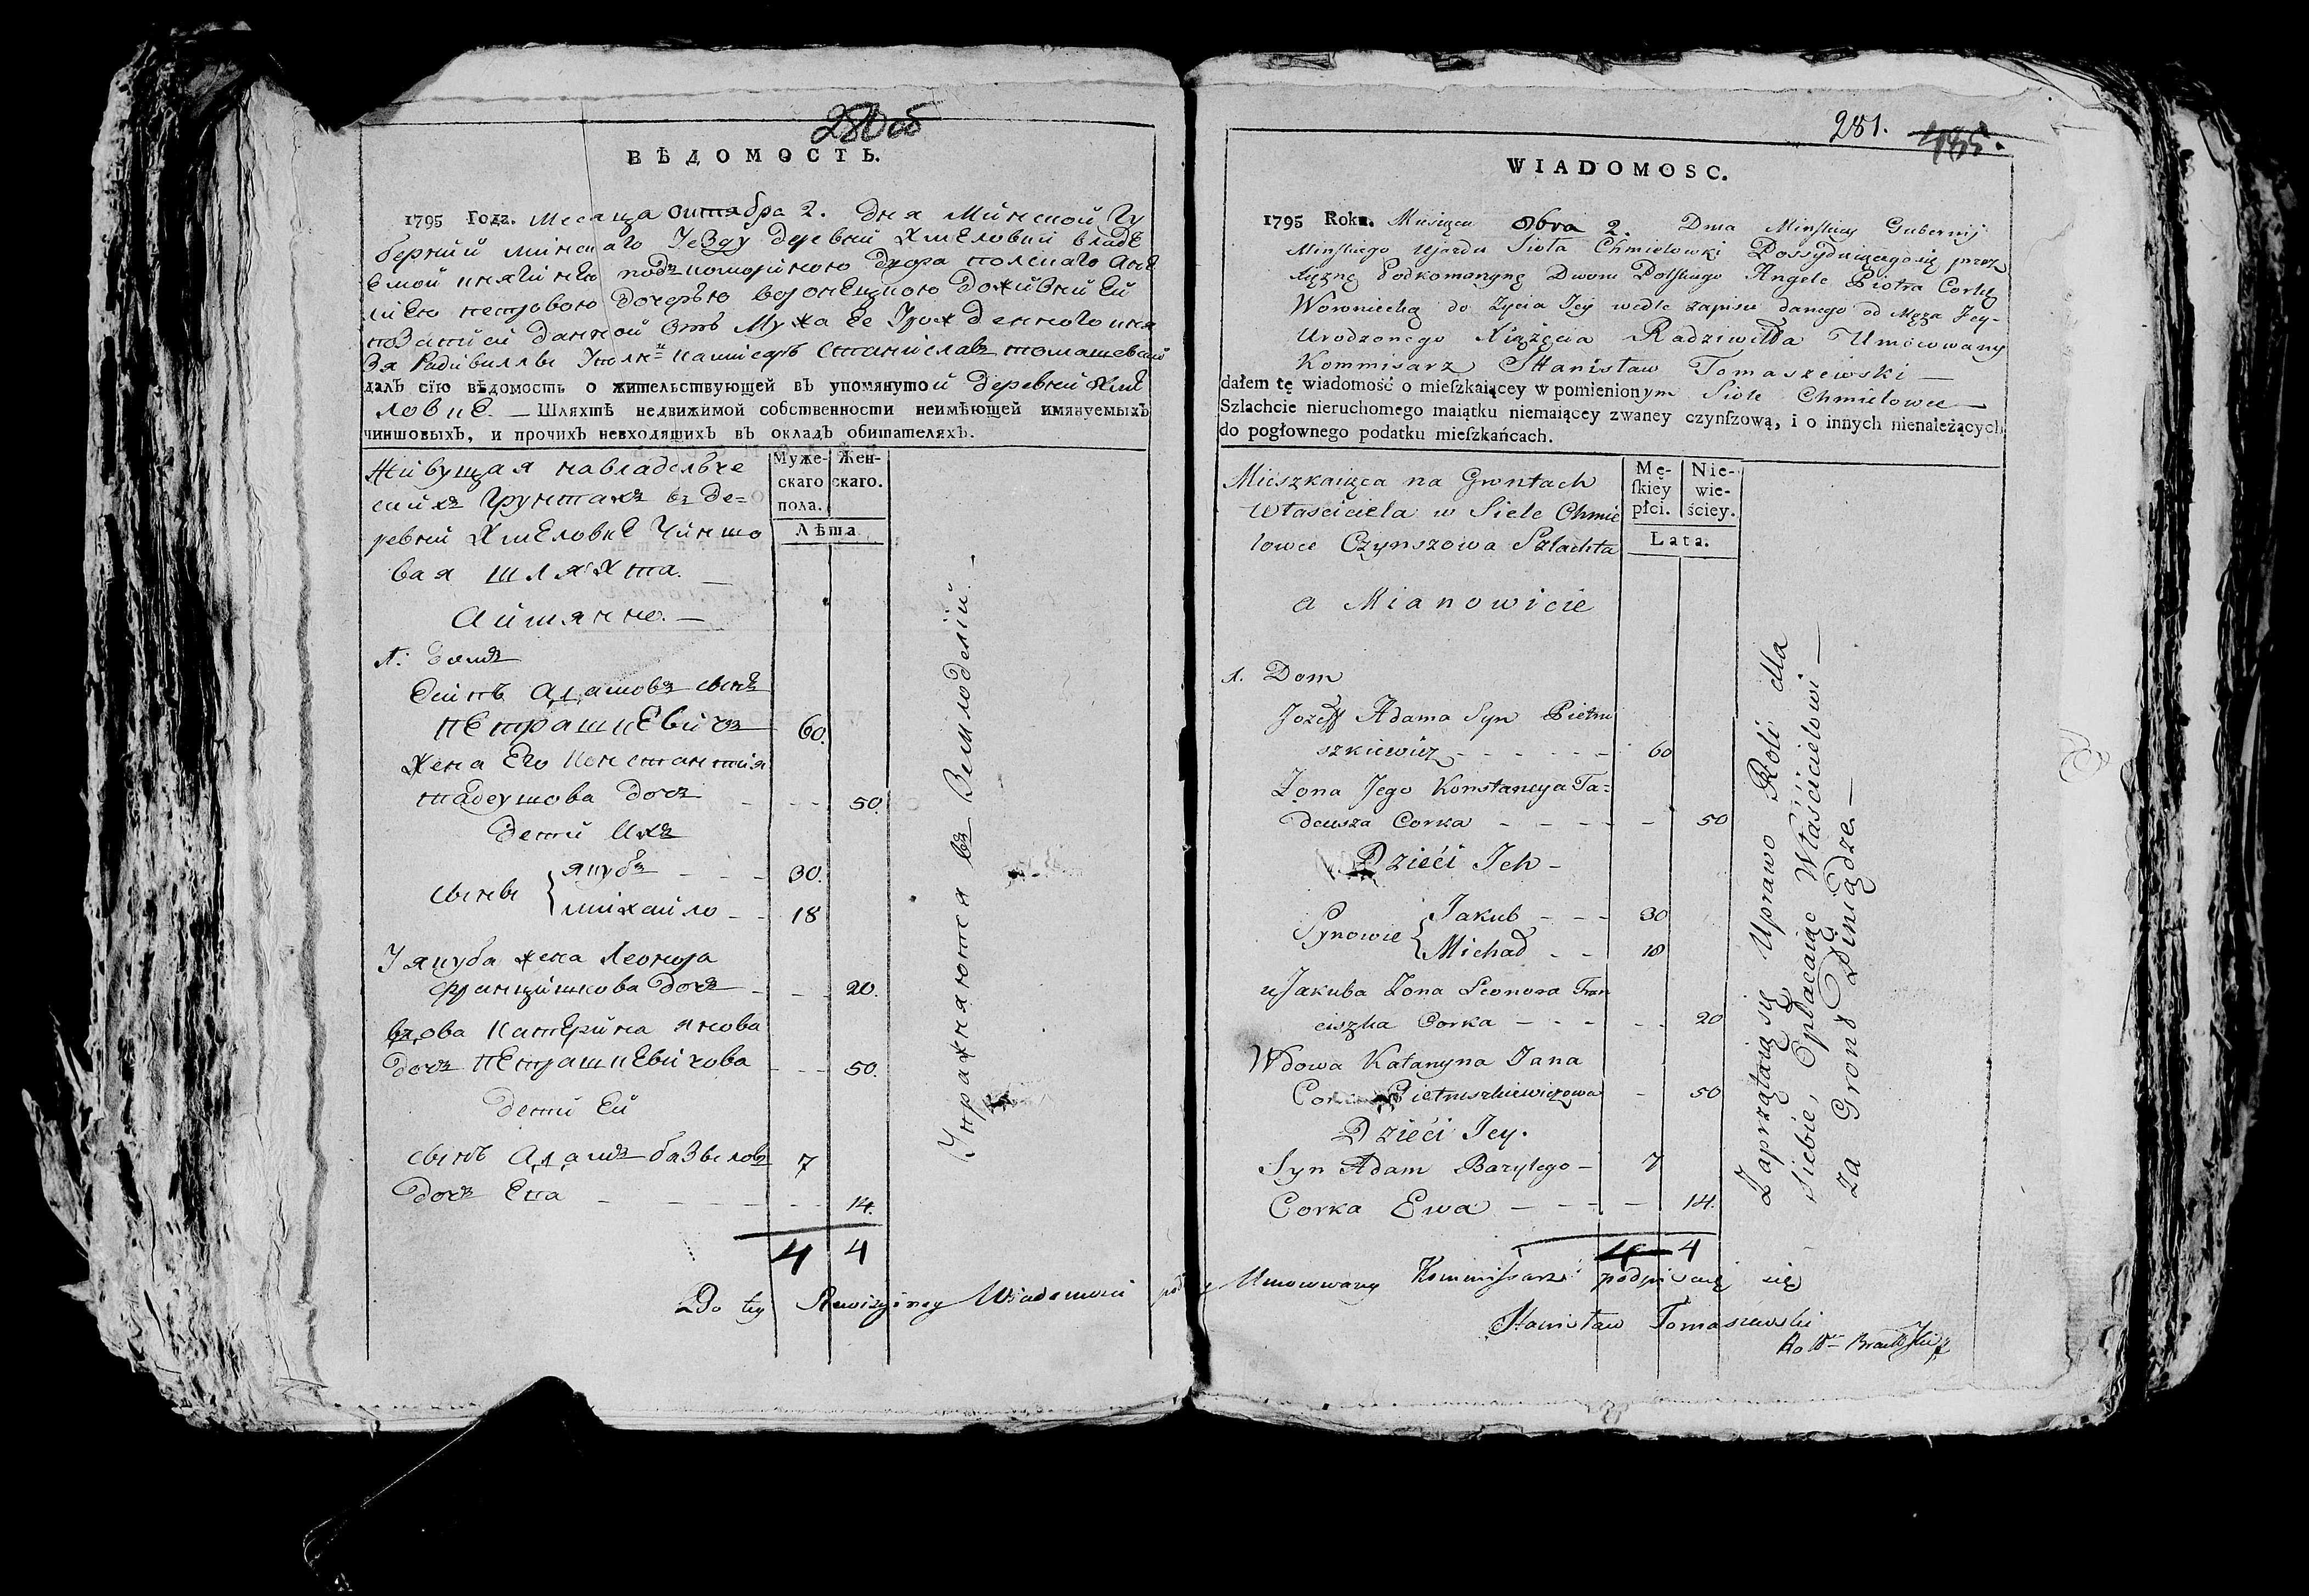 280 об
ВѢДОМОСТЬ.
1795 Года. Месяца октября 2. Дня Минской Гу
берний Минскаго Уезду деревни Хмеловки владе
емой княгинею подкомориною двора полскаго Анге
лиею петровою дочерью
данной отъ Мужа Ее Урожденного кня
зя Радивиллы Станиславъ томашевский
далъ сїю вѣдомость о жительствующей въ упомянутой деревни Хме
ловке — Шляхтѣ недвижимой собственности неимѣющей имянуемыхъ
чиншовыхъ, и прочихъ невходящихъ въ окладъ обитателяхъ.
Муже-
скаго
пола.
Жен-
скаго.
Лѣта
Живущая на владельче
скихъ Грунтахъ въ де=
ревни Хмеловке Чиншо
вая шляхта. —
А имянно. —
1. Домъ
Адамовъ сынъ
петрашкевичъ 60.
Жена Его Констанция
тадеушова дочь - - - 50.
дети Ихъ
сыны { якубъ - - - 30.
михайло - - 18
У якуба жена Леонора
францишкова дочь - - - 20.
вдова Катерина янова
дочь петрашкевичова - - - 50.
дети Ей
сынъ Адамъ базыловъ 7
дочь Ева - - - - - 14.
4 4
Упражняются въ земледелии. —
Do tey Rewizyiney Wiadomosci
281. 485.
WIADOMOSC.
1795 Roku. Miesiąca 8bra 2. Dnia Mińskiey Gubernij
Mińskiego Ujazdu Sioła Chmielowki Possyduiącego się przez
Xiężnę Podkomorzynę Dworu Polskiego Angelę Piotra Corkę
Woroniecką do życia Jey wedle zapisu danego od Męża Jey -
Urodzonego Xiążęcia Radziwiłła Umocowany
Kommisarz Stanisław Tomaszewski —
dałem tę wiadomość o mieſzkaiącey w pomienionym Siole Chmielowce —
Szlachcie nieruchomego maiątku niemaiącey zwaney czynſzową, i o innych nienależących
do pogłownego podatku mieſzkańcach.
Mę-
ſkiey
płci.
Nie-
wie-
ściey.
Lata.
Mieszkaiąca na Gruntach
Własciciela w Siele Chmie
lowce Czynszowa Szlachta
a Mianowicie
1. Dom
Jozeff Adama Syn Pietru
szkiewicz - - - - - - 60
Żona Jego Konstancya Ta=
deusza Corka - - - - - 50
Dzieći Ich -
Synowie { Jakub - - - 30
Michał - - 18
u Jakuba Żona Leonora Fran
ciszka Corka - - - - - 20
Wdowa Katarzyna Jana
Corka Pietruszkiewiczowa - 50
Dzieći Jey.
Syn Adam Bazylego - 7
Corka Ewa - - - - - 14.
4 4
Zaprzątaią się Uprawo Roli dla
siebie, Opłacaiąc Właśćicielowi —
za Gront Pieniądze. —
Umocowany Kommissarz podpisuię się
Stanisław Tomaszewski